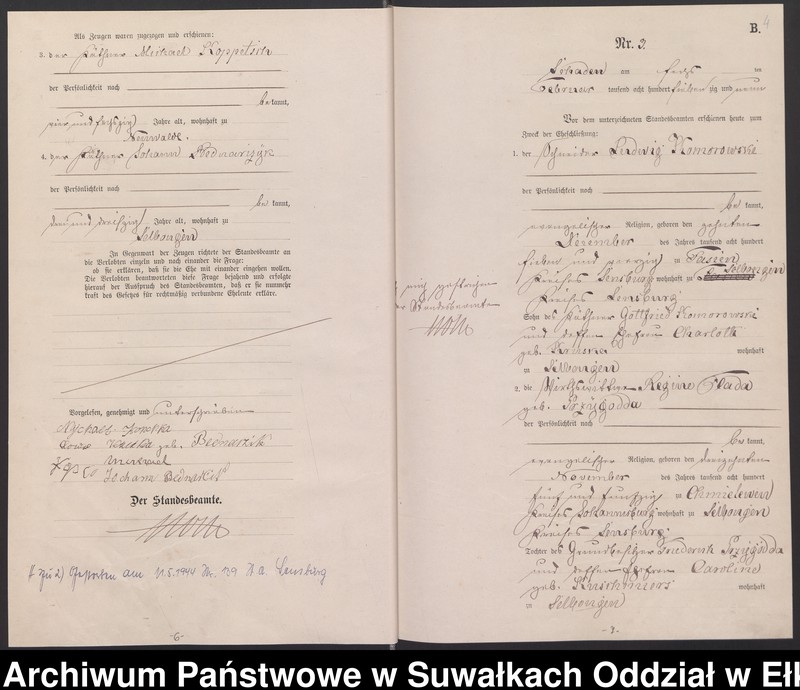 Als Zeugen waren zugezogen und erschienen:
3. der Käthner Michael Koppetsch
der Persönlichkeit nach
be kannt,
vier und sechszig Jahre alt, wohnhaft zu
Neuwalde.
4. der Käthner Johann Bednarzyk
der Persönlichkeit nach
be kannt,
drei und dreißig Jahre alt, wohnhaft zu
Selbongen
In Gegenwart der Zeugen richtete der Standesbeamte an
die Verlobten einzeln und nach einander die Frage:
ob sie erklären, daß sie die Ehe mit einander eingehen wollen.
Die Verlobten beantworteten diese Frage bejahend und erfolgte
hierauf der Ausspruch des Standesbeamten, daß er sie nunmehr
kraft des Gesetzes für rechtmäßig verbundene Eheleute erkläre.
Vorgelesen, genehmigt und unterschrieben
geb. Bednarzik
Johann Bednarzik
Der Standesbeamte.
zu 2) Gestorben am 11.5.1944 Nr. 139 St. A. Sensburg
-6-
B.
4
Nr. 2.
am sechs ten
Februar tausend acht hundert sieben zig und neun
Vor dem unterzeichneten Standesbeamten erschienen heute zum
Zweck der Eheschließung:
1. der Schneider Ludwig Komorowski
der Persönlichkeit nach
be kannt,
evangelischer Religion, geboren den zehnten
Dezember des Jahres tausend acht hundert
sieben und vierzig zu
Kreises Sensburg wohnhaft zu Selbongen
Kreises Sensburg
Sohn des Käthner Gottfried Komorowski
und dessen Ehefrau Charlotte
geb. wohnhaft
zu Selbongen
2. die Regine
geb. Przygodda
der Persönlichkeit nach
be kannt,
evangelischer Religion, geboren den dreizehnten
November des Jahres tausend acht hundert
fünf und fünfzig zu Chmielewen
Kreises Johannisburg wohnhaft zu Selbongen
Kreises Sensburg
Tochter des Grundbesitzer Friedrich Przygodda
und dessen Ehefrau Caroline
geb. wohnhaft
zu Selbongen
der Standesbeamte
-7-
Archiwum Państwowe w Suwałkach Oddział w Ełk